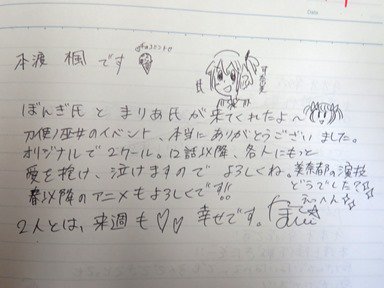 本渡 楓 です
チョコミント!!
ぼんぎ氏 と まりあ氏 が来てくれたよ〜
刀使ノ巫女のイベント、本当に ありがとうございました。
オリジナルで 2クール。12話以降、各人にもっと
愛を抱け、泣けますので よろしくね。美奈都の演技
どうでした?☆
春以降のアニメもよろしくです!!
えっへん☆
2人とは、来週 も♡♡ 幸せです。
Date